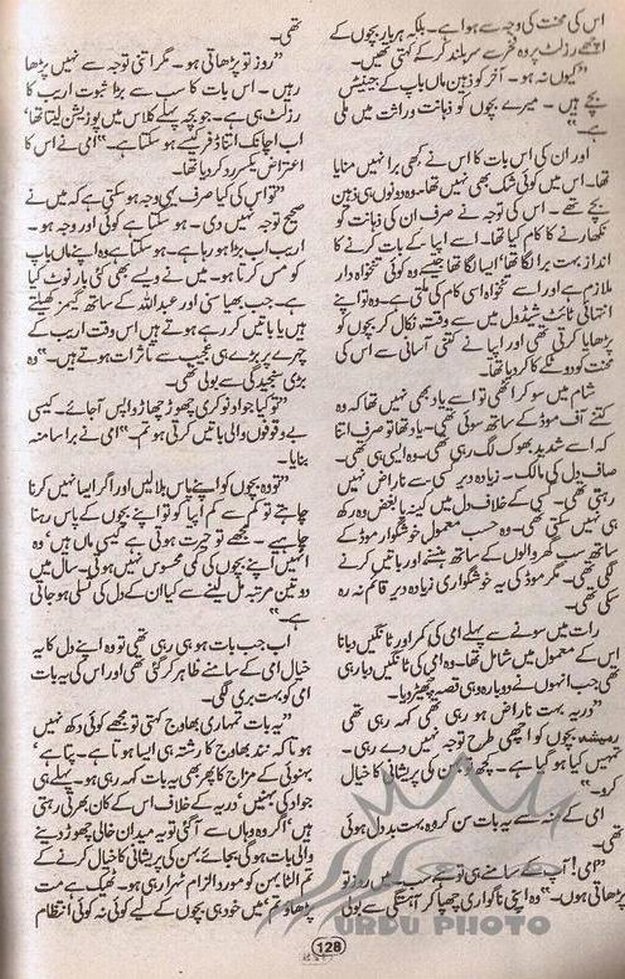 اس کی محنت کی وجہ سے ہوا ہے۔ بلکہ ہر بار بچوں کے
اچھے رزلٹ پر وہ فخر سے سر بلند کر کے کہتی تھیں۔
”کیوں نہ ہو۔ آخر کو ذہین ماں باپ کے جینیئس
بچے ہیں۔ میرے بچوں کو ذہانت وراثت میں ملی
ہے۔“
اور ان کی اس بات کا اس نے کبھی برا نہیں منایا
تھا۔ اس میں کوئی شک بھی نہیں تھا۔ وہ دونوں ہی ذہین
بچے تھے۔ اس کی توجہ نے صرف ان کی ذہانت کو
نکھارنے کا کام کیا تھا۔ اسے اپیا کے بات کرنے کا
انداز بہت برا لگا تھا‘ ایسا لگا تھا جیسے وہ کوئی تنخواہ دار
ملازم ہے اور اسے تنخواہ اسی کام کی ملتی ہے۔ وہ تو اپنے
انتہائی ٹائٹ شیڈول میں سے وقت نکال کر بچوں کو
پڑھایا کرتی تھی اور اپیا نے کتنی آسانی سے اس کی
محنت کو دو ٹکے کا کر دیا تھا۔
شام میں سو کر اٹھی تو اسے یاد بھی نہیں تھا کہ وہ
کتنے آف موڈ کے ساتھ سوئی تھی۔ یاد تھا تو صرف اتنا
کہ اسے شدید بھوک لگ رہی تھی۔ وہ ایسی ہی تھی۔
صاف دل کی مالک۔ زیادہ دیر کسی سے ناراض نہیں
رہتی تھی۔ کسی کے خلاف دل میں کینہ یا بغض وہ رکھ
ہی نہیں سکتی تھی۔ وہ حسب معمول خوشگوار موڈ کے
ساتھ سب گھر والوں کے ساتھ ہنسنے اور باتیں کرنے
لگی تھی۔ مگر موڈ کی یہ خوشگواری زیادہ دیر قائم نہ رہ
سکی تھی۔
رات میں سونے سے پہلے امی کی کمر اور ٹانگیں دبانا
اس کے معمول میں شامل تھا۔ وہ امی کی ٹانگیں دبا رہی
تھی جب انہوں نے دوبارہ وہی قصہ چھیڑ دیا۔
”دریہ بہت ناراض ہو رہی تھی کہہ رہی تھی
رمیشہ بچوں کو اچھی طرح توجہ نہیں دے رہی۔
تمہیں کیا ہو گیا ہے۔ کچھ تو بہن کی پریشانی کا خیال
کرو۔“
امی کے منہ سے یہ بات سن کر وہ بہت بد دل ہوئی
تھی۔
”امی! آپ کے سامنے ہی تو ہے سب۔ میں روز تو
پڑھاتی ہوں۔“ وہ اپنی ناگواری چھپا کر آہستگی سے بولی
تھی۔
”روز تو پڑھاتی ہو۔ مگر اتنی توجہ سے نہیں پڑھا
رہیں۔ اس بات کا سب سے بڑا ثبوت اریب کا
رزلٹ ہی ہے۔ جو بچہ پہلے کلاس میں پوزیشن لیتا تھا‘
اب اچانک اتنا ڈفر کیسے ہو سکتا ہے۔“ امی نے اس کا
اعتراض یکسر رد کر دیا تھا۔
”تو اس کی کیا صرف یہی وجہ ہو سکتی ہے کہ میں نے
صحیح توجہ نہیں دی۔ ہو سکتا ہے کوئی اور وجہ ہو۔
اریب اب بڑا ہو رہا ہے۔ ہو سکتا ہے وہ اپنے ماں باپ
کو مس کرتا ہو۔ میں نے ویسے بھی کئی بار نوٹ کیا
ہے۔ جب بھیا سنی اور عبداللہ کے ساتھ گیمز کھیلتے
ہیں یا باتیں کر رہے ہوتے ہیں اس وقت اریب کے
چہرے پر بڑے ہی عجیب سے تاثرات ہوتے ہیں۔“ وہ
بڑی سنجیدگی سے بولی تھی۔
”تو کیا جواد نوکری چھوڑ چھاڑ واپس آ جائے۔ کیسی
بے وقوفوں والی باتیں کرتی ہو تم۔“ امی نے برا سا منہ
بنایا۔
”تو وہ بچوں کو اپنے پاس بلا لیں اور اگر ایسا نہیں کرنا
چاہتے تو کم سے کم آپا کو تو اپنے بچوں کے پاس رہنا
چاہیے۔ مجھے تو حیرت ہوتی ہے کیسی ماں ہیں‘ وہ
انہیں اپنے بچوں کی کمی محسوس نہیں ہوتی۔ سال میں
دو تین مرتبہ مل لینے سے کیا ان کے دل کی تسلی ہو جاتی
ہے۔“
اب جب بات ہو ہی رہی تھی تو وہ اپنے دل کا یہ
خیال امی کے سامنے ظاہر کر گئی تھی اور اس کی یہ بات
امی کو بہت بری لگی۔
”یہ بات تمہاری بھاوج کہتی تو مجھے کوئی دکھ نہیں
ہوتا کہ نند بھاوج کا رشتہ ہی ایسا ہوتا ہے۔ پتا ہے‘
بہنوئی کے مزاج کا پھر بھی یہ بات کہہ رہی ہو۔ پہلے ہی
جواد کی بہنیں‘ دریہ کے خلاف اس کے کان بھرتی رہتی
ہیں‘ اگر وہ وہاں سے آ گئی تو یہ میدان خالی چھوڑ دینے
والی بات ہو گی بجائے بہن کی پریشانی کا خیال کرنے کے
تم الٹا بہن کو مورد الزام ٹھہرا رہی ہو۔ ٹھیک ہے مت
پڑھاؤ تم‘ میں خود ہی بچوں کے لیے کوئی نہ کوئی انتظام
URDU PHOTO
128